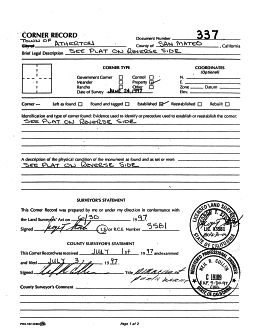 CORNER RECORD
Document Number 337
TOWN OF ATHERTON County of SAN MATEO, California
Brief Legal Description SEE PLAT ON REVERSE SIDE
CORNER TYPE
COORDINATES
(Optional)
Government Corner Control
Meander Property
Rancho Other
Date of Survey JUNE
N.
E.
Zone Datum
Elev.
Corner — Left as found Found and tagged Established Reestablished Rebuilt
Identification and type of corner found: Evidence used to identify or procedure used to establish or reestablish the corner:
SEE PLAT ON REVERSE SIDE
A description of the physical condition of the monument as found and as set or reset:
SEE PLAT ON REVERSE SIDE.
SURVEYOR'S STATEMENT
This Corner Record was prepared by me or under my direction in conformance with
the Land Surveyors' Act on 6/30 1997
Signed L.S. or R.C.E. Number 5561
COUNTY SURVEYOR'S STATEMENT
This Corner Record was received JULY 1st 1997 and examined
and filed JULY 1997
Signed Title
County Surveyor's Comment
Page 1 of 2